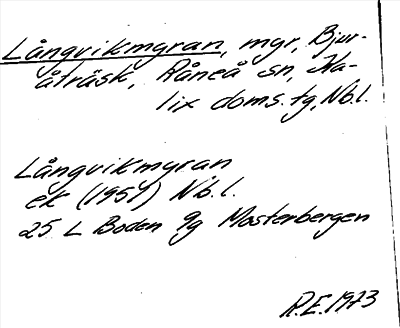 Långvikmyran, myr, Bjur-
åträsk, Råneå sn, Ka-
lix doms. tg, Nb.l.
Långvikmyran
ek (1951) Nb.l.
25 L Boden 9g Mosterbergen
R.E. 1973